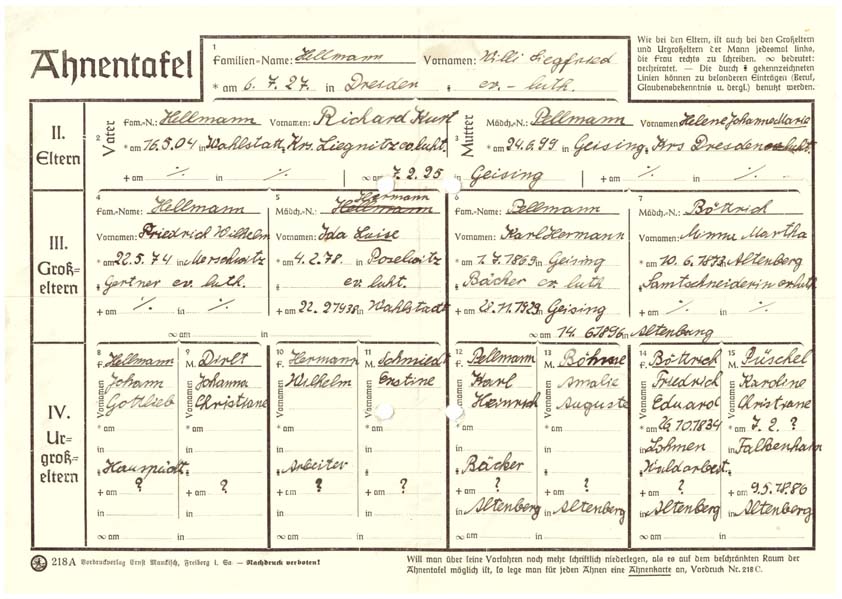 Ahnentafel
1
Familien-Name: Hellmann Vornamen: Willi Siegfried
* am 6. 7. 27. in Dresden ev. - luth.
Wie bei den Eltern, ist auch bei den Großeltern
und Urgroßeltern der Mann jedesmal links,
die Frau rechts zu schreiben. ∞ bedeutet:
verheiratet. — Die durch gekennzeichneten
Linien können zu besonderen Einträgen (Beruf,
Glaubensbekenntnis u. dergl.) benutzt werden.
II.
Eltern
2
Vater
Fam.-N.: Hellmann Vornamen: Richard Kurt
* am 16.5.04 in Wahlstatt, Krs. Liegnitz ev. luht.
+ am ./. in ./. ∞ am 7.2.25
3
Mutter
Mädch.-N.: Pellmann Vornamen Helene Johanne Marie
* am 24.6.99 in Geising, Krs Dresden
in Geising
+ am ./. in ./.
III.
Groß-
eltern
4
Fam.-Name: Hellmann
Vornamen: Friedrich Wilhelm
* am 22.5.74 in
Gertner ev. luth.
+ am ./. in ./.
∞ am in
5
Mädch.-N.: Hermann
Vornamen: Ida Luise
* am 4.2.78. in
ev. luht.
+ am 22. in Wahlstadt
6
Fam.-Name: Pellmann
Vornamen: Karl Hermann
* am 1.7.1869 in Geising
Bäcker ev. luth
+ am 28.11.1929 in Geising
∞ am 14. 6.1896 in Altenburg
7
Mädch.-N.: Böttrich
Vornamen: Minna Martha
* am 10.6.1873 in Altenberg
+ am ./. in ./.
IV.
Ur-
groß-
eltern
8
F. Hellmann
Vornamen Johann
Gottlieb
* am
in
+ am ?
in
∞ am
9
M.
Vornamen Johanna
Christiane
* am
in
+ am ?
in
in
10
F. Hermann
Vornamen Wilhelm
* am
in
Arbeiter
+ am ?
in
∞ am
11
M. Schmiedt
Vornamen Ernstine
* am
in
+ am ?
in
in
12
F. Pellmann
Vornamen Karl
Heinrich
* am
in
Bäcker
+ am ?
in Altenberg
∞ am
13
M. Böhme
Vornamen Amalie
Auguste
* am
in
+ am ?
in Altenberg
in
14
F. Böttrich
Vornamen Friedrich
Eduard
* am 26.10.1834
in Lohmen
Waldarbeit.
+ am ?
in Altenberg
∞ am
15
M. Püschel
Vornamen Karoline
Christiane
* am 7. 2. ?
in Falkenhain
+ am 9.5.1886
in Altenberg
in
218 A Vordruckverlag Ernst Mauckisch, Freiberg i. Sa. — Nachdruck verboten!
Will man über seine Vorfahren noch mehr schriftlich niederlegen, als es auf dem beschränkten Raum der
Ahnentafel möglich ist, so lege man für jeden Ahnen eine Ahnenkarte an, Vordruck Nr. 218 C.